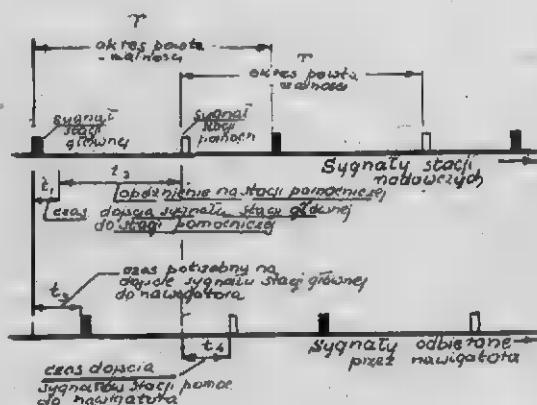 T
okres powta
-rzalności
T
okres powta
rzalności
sygnał
stacji
głównej
sygnał
stacji
pomocn
Sygnały stacji
nadawczych
t₁
t₂
opóźnienie na stacji pomocniczej
czas dojścia sygnału stacji głównej
do stacji pomocniczej
czas potrzebny na
dojście sygnału stacji głównej
do nawigatora
t₃
t₄
Sygnały odbierane
przez nawigatora
czas dojścia
sygnałów stacji pomoc.
do nawigatora